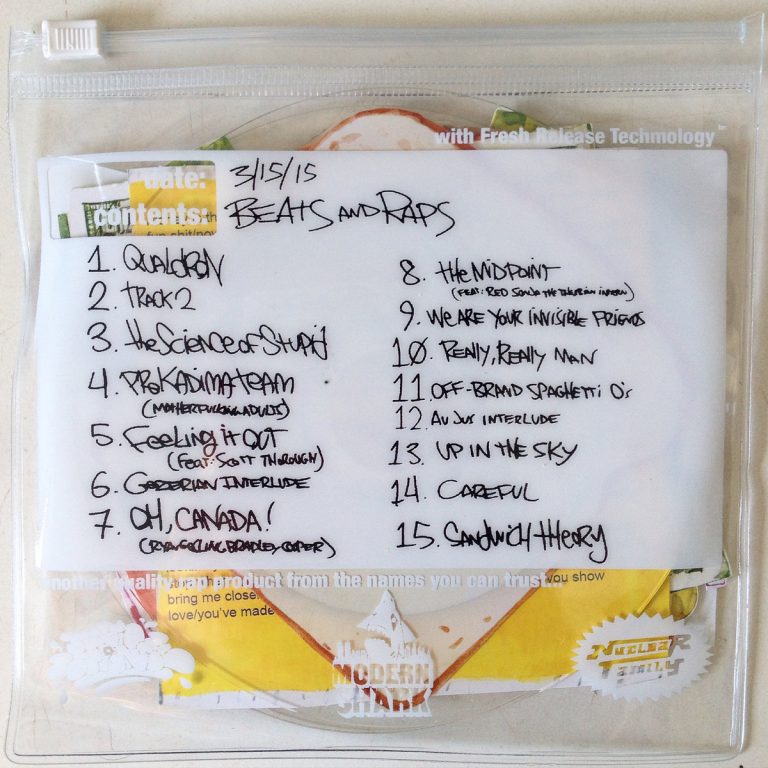 with Fresh Release Technology™
date: 3/15/15
contents: BEATS AND RAPS
1. QUALDRON
2. TRACK 2
3. the Science of Stupid
4. PRO KADIMA TEAM
5. Feeling it OUT
(FEAT: SCOTT THOROUGH)
6. GOZERIAN INTERLUDE
7. OH, CANADA!
(RYAN GOSLING, BRADLEY COOPER)
8. the MIDPOINT
(FEAT: RED SONJA THE INTERN)
9. WE ARE YOUR INVISIBLE FRIENDS
10. REALLY, REALLY MAN
11. OFF-BRAND SPAGHETTI O's
12. AU JUS INTERLUDE
13. UP IN THE SKY
14. CAREFUL
15. SANDWICH THEORY
another quality rap product from the names you can trust...
you show
bring me close.
love/you've made
MODERN
SHARK
NUCLEAR
FAMILY